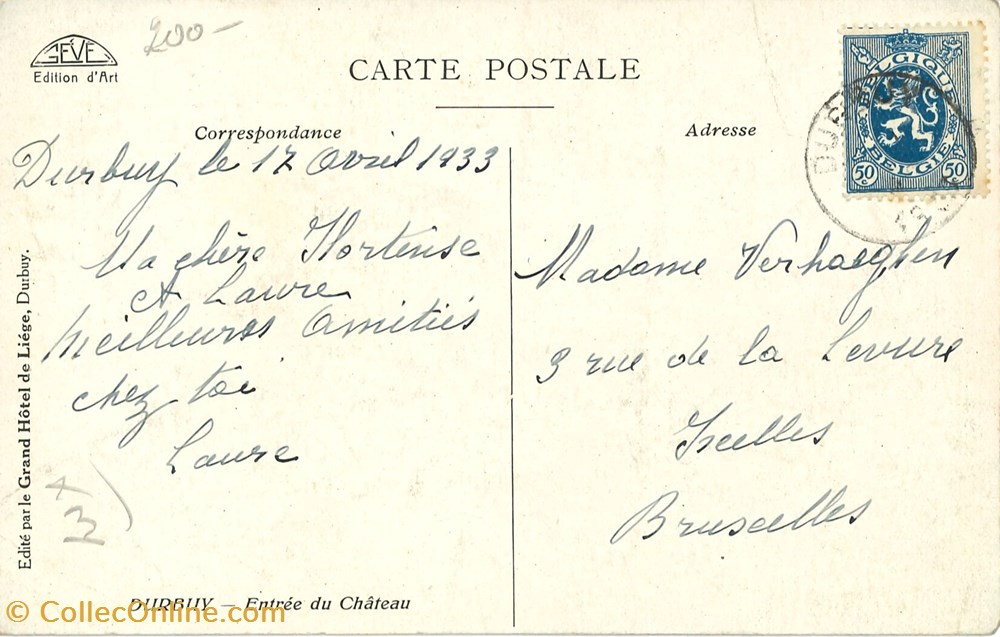 GÉVÉ
Edition d'Art
200-
CARTE POSTALE
Correspondance
Adresse
BELGIQUE
BELGIË
50c 50c
DURBUY
Durbuy le 17 Avril 1933
Ma chère Hortense
et Laure
Meilleures amitiés
chez toi
Laure
Madame Verhaeghen
3 rue de la Levure
Ixelles
Bruxelles
Edité par le Grand Hôtel de Liége, Durbuy.
DURBUY — Entrée du Château
© CollecOnline.com